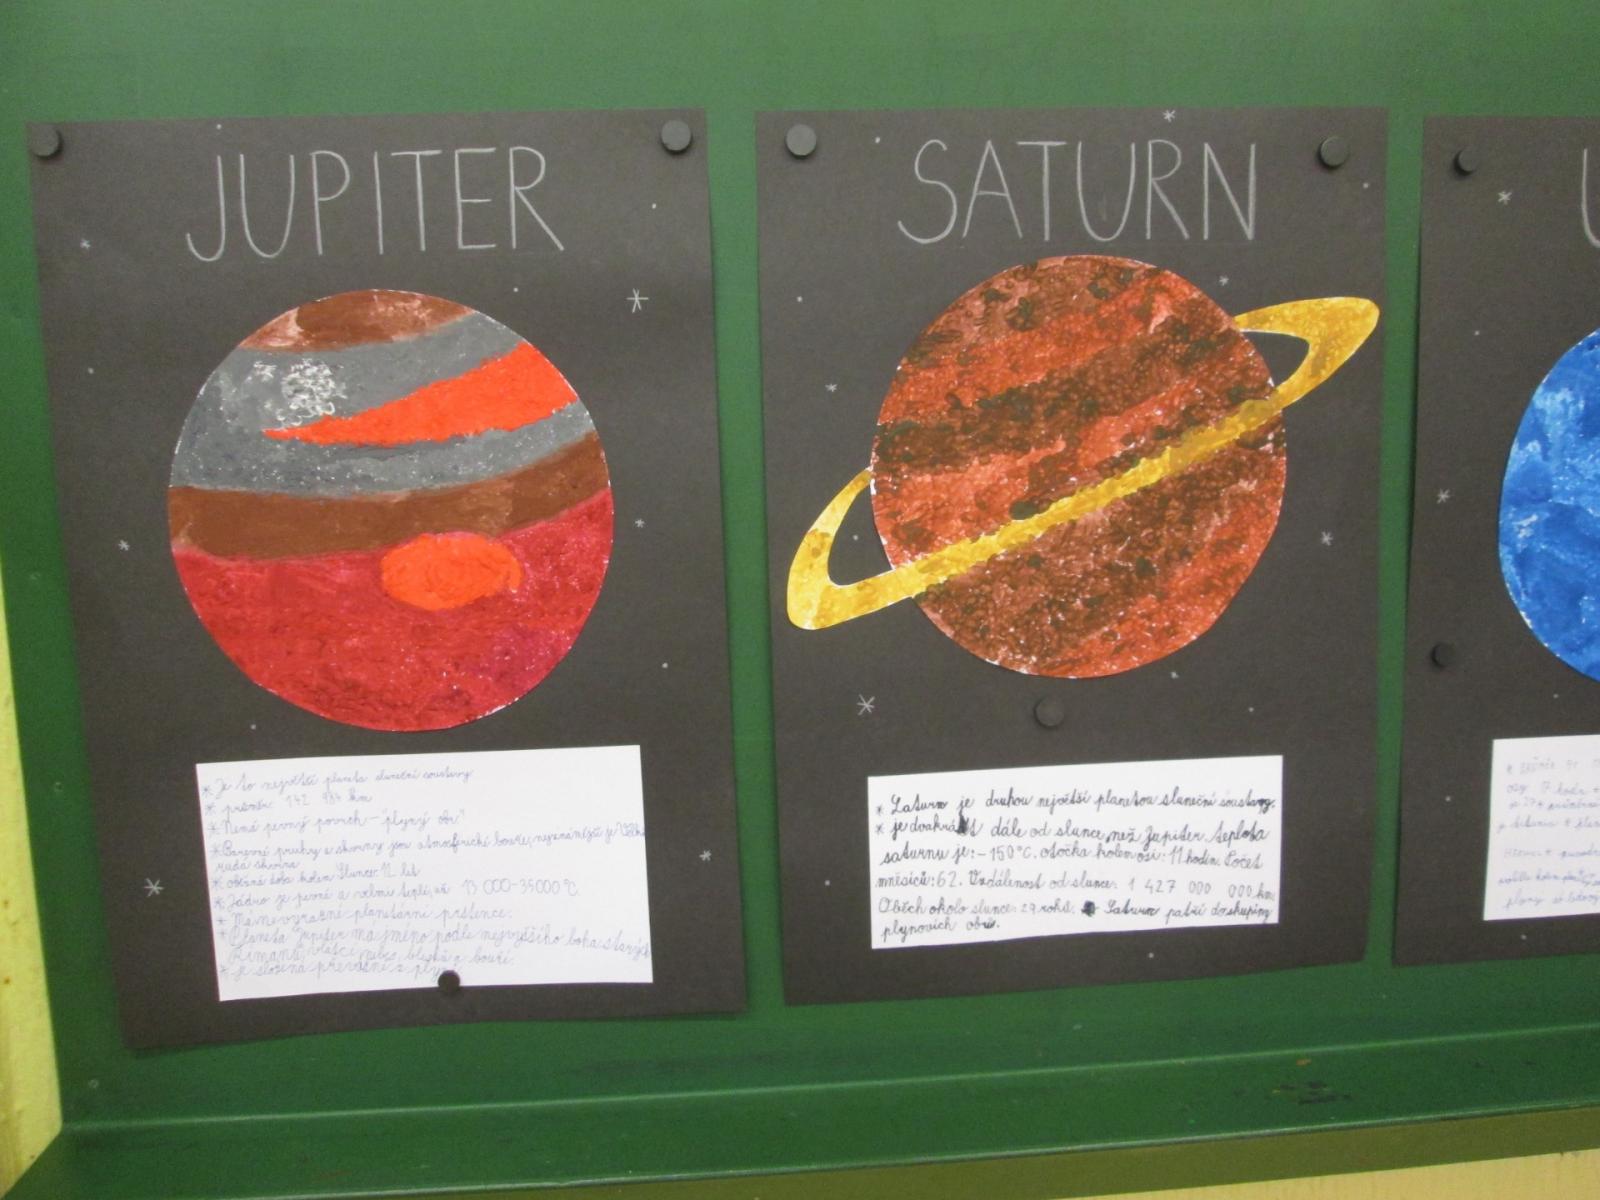 JUPITER
* Je to největší planeta sluneční soustavy.
* průměr: 142 984 km
* Nemá pevný povrch - "plynný obr"
* Barevné pruhy a skvrny jsou atmosférické bouře, nejznámější je Velká
rudá skvrna
* oběžná doba kolem Slunce: 12 let
* Jádro je pevné a velmi teplé, až 13 000-35000°C.
* Má nevýrazné planetární prstence.
* Planeta Jupiter má jméno podle nejvyššího boha starých
Římanů, vládce nebes, blesků a bouří.
* je složena převážně z
SATURN
* Saturn je druhou největší planetou sluneční soustavy.
* je dvakrát dále od slunce než Jupiter. teplota
saturnu je: -150°C. otočka kolem osi: 11 hodin. Počet
měsíců: 62. Vzdálenost od slunce: 1 427 000 000 km
Oběch okolo slunce: 29 roků. * Saturn patří do skupiny
plynovích obrů.
U